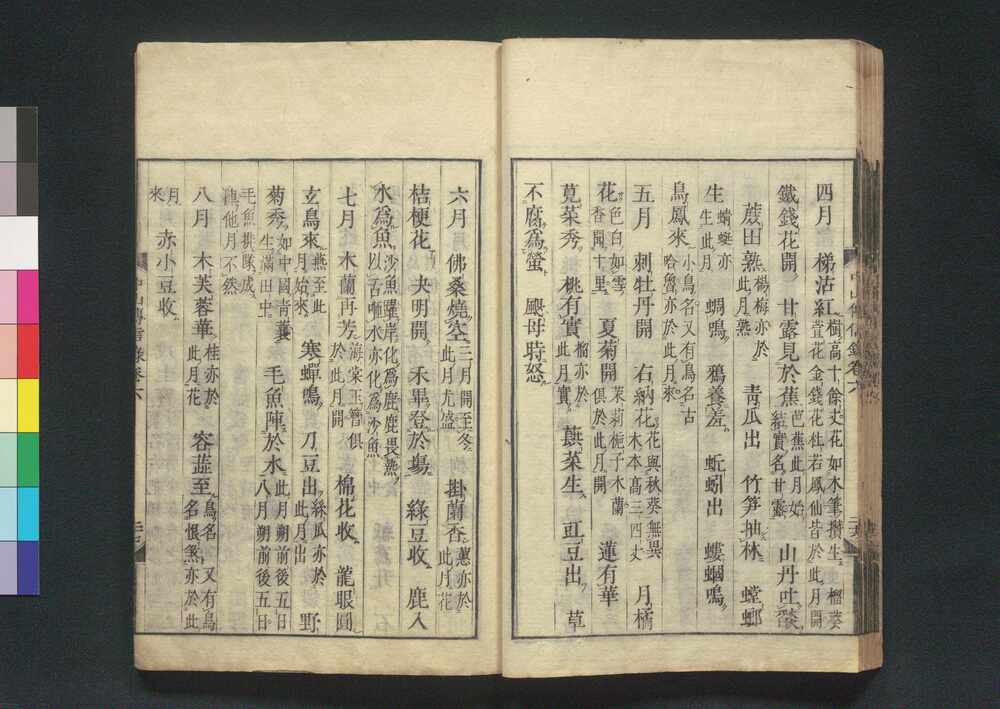 四月 梯沽紅樹高十餘丈花如木筆攢生榴葵萱花金錢花杜若鳳仙皆於此月開
鐵錢花開 甘露見於蕉芭蕉此月始結實名甘露 山丹吐燄
蔗田熟楊梅亦於此月熟 青瓜出 竹笋抽林 螳螂
生蜻蜓亦生此月 蜩鳴 鴉養羞 蚯蚓出 螻蟈鳴
鳥鳳來小鳥名又有鳥名古哈魯亦於此月來
五月 刺牡丹開 右納花花與秋葵無異木本高三四丈 月橘
花色白如雪香聞十里 夏菊開茉莉梔子木蘭俱於此月開 蓮有華
莧菜秀 桃有實榴亦於此月實 蕻菜生 豇豆出 草
不腐爲螢 颶母時怒
六月 佛桑燒空三月開至冬此月尤盛 掛蘭香蕙亦於此月花
桔梗花 夬明開 禾畢登於場 綠豆收 鹿入
水爲魚沙魚躍岸化爲鹿鹿畏熱以舌咂水亦化爲沙魚
七月 木蘭再芳海棠玉簪俱於此月開 棉花收 龍眼圓
玄鳥來燕至此月始來 寒蟬鳴 刀豆出絲瓜亦於此月出 野
菊秀如中國青蘘生滿田中 毛魚陣於水此月朔前後五日八月朔前後五日
毛魚攢隊成他月不然
八月 木芙蓉華桂亦於此月花 容蔬至鳥名又有鳥名恨煞亦於此
月來 赤小豆收
中山傳信錄卷六